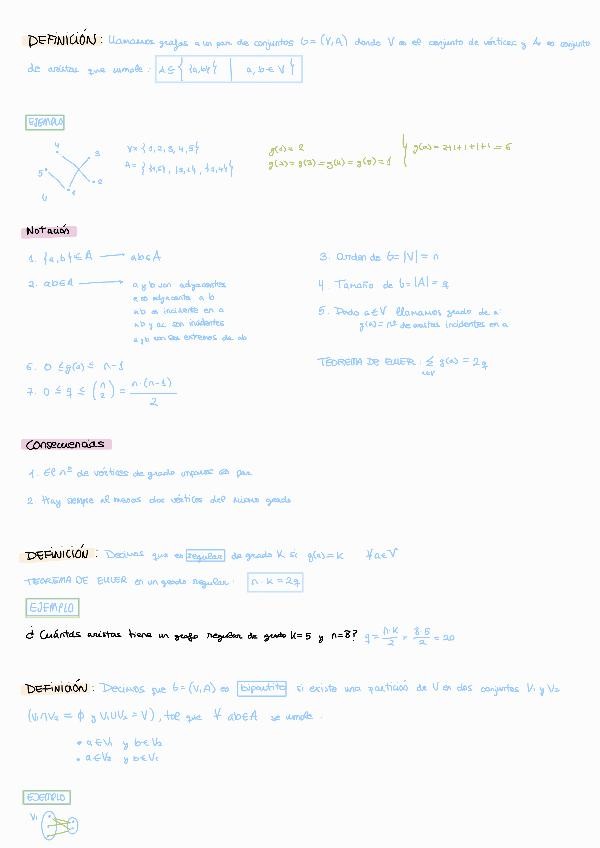 DEFINICIÓN: Llamamos grafos a un par de conjuntos G=(V,A) donde V es el conjunto de vértices y A es conjunto
de aristas que cumole: A⊆{{a,b} | a,b∈V}
EJEMPLO
4
3
5
2
1
V={1,2,3,4,5}
A={{1,5}, {3,1}, {1,4}}
g(1)=2
g(2)=g(3)=g(4)=g(5)=1
g(a)=2+1+1+1+1=6
Notación
1. {a,b}∈A → ab∈A
2. ab∈A → a y b son adyacentes
a es adyacente a b
ab es incidente en a
ab y ac son incidentes
a y b son los extremos de ab
3. Orden de G=|V|=n
4. Tamaño de G=|A|=q
5. Dado a∈V llamamos grado de a:
g(a)=nº de aristas incidentes en a
6. 0≤g(a)≤n-1
7. 0≤q≤(n 2)=n·(n-1)/2
TEOREMA DE EULER: Σ a∈V g(a)=2q
Consecuencias
1. El nº de vértices de grado impares es par
2. Hay siempre al menos dos vértices del mismo grado
DEFINICIÓN: Decimos que es regular de grado K si g(a)=k ∀a∈V
TEOREMA DE EULER en un grado regular: n·k=2q
EJEMPLO
¿Cuántas aristas tiene un grafo regular de grado K=5 y n=8? q=n·k/2=8·5/2=20
DEFINICIÓN: Decimos que G=(V,A) es bipartito si existe una partición de V en dos conjuntos V₁ y V₂
(V₁∩V₂=∅ y V₁∪V₂=V), tal que ∀ ab∈A se cumole:
• a∈V₁ y b∈V₂
• a∈V₂ y b∈V₁
EJEMPLO
V₁